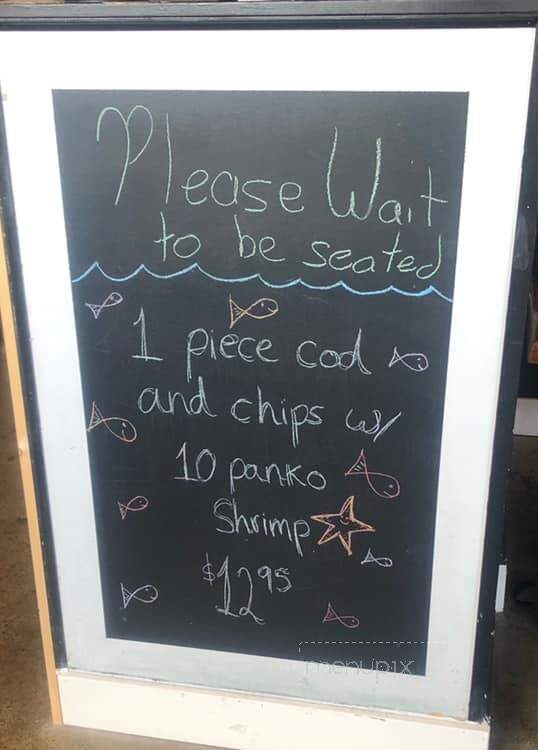 Please Wait
to be seated
1 piece cod
and chips w/
10 panko
Shrimp
$12 95
menupix